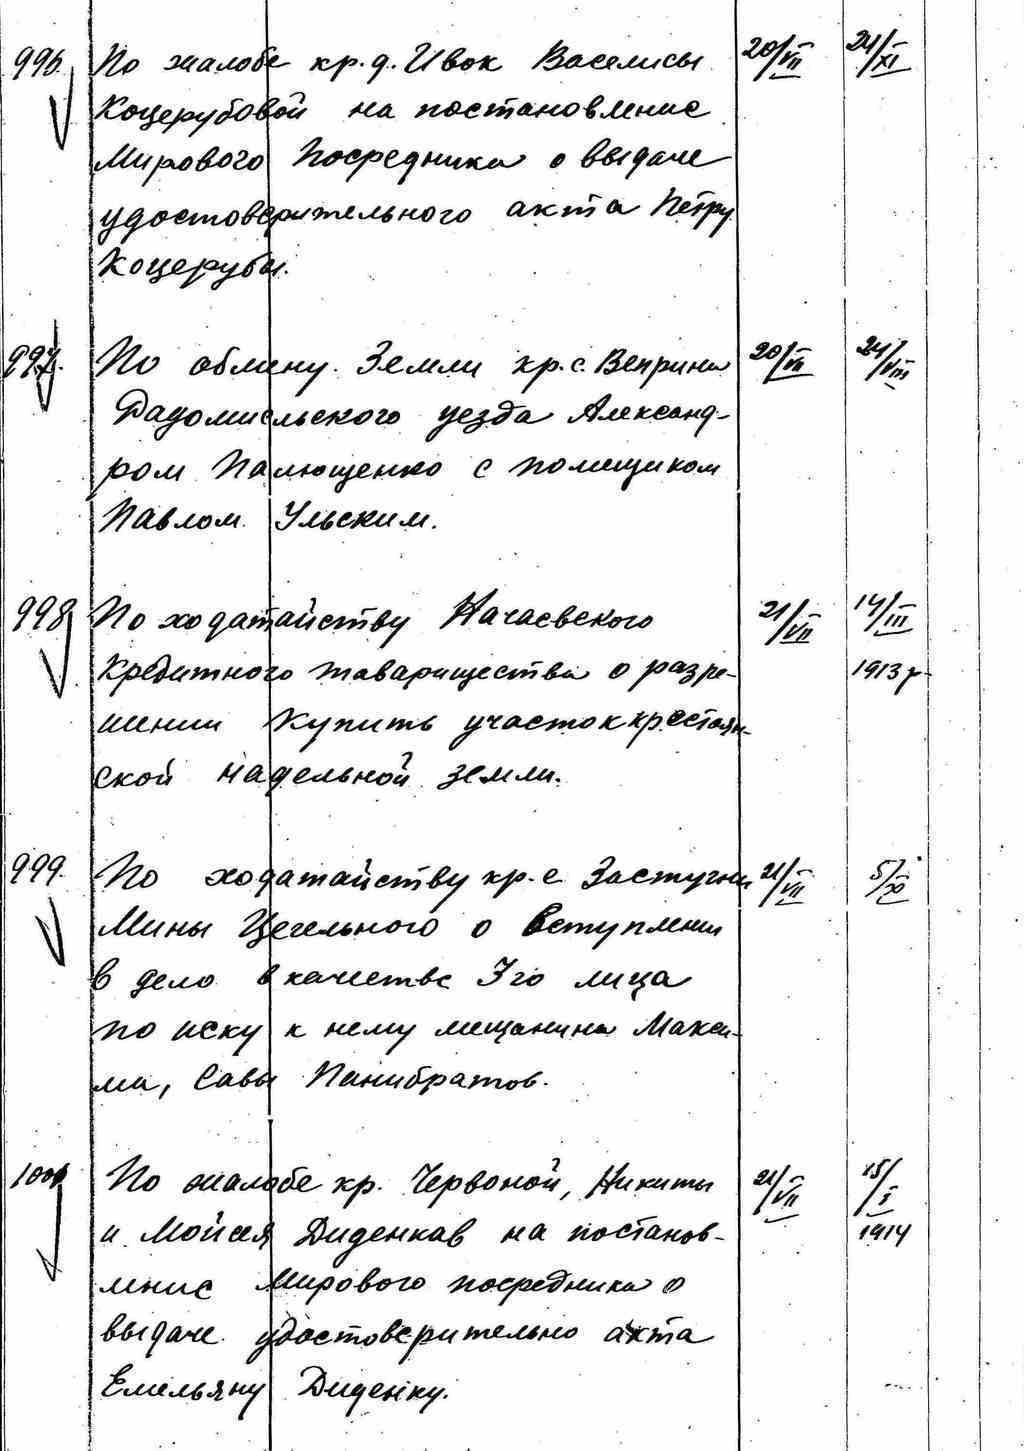 996. По жалобе кр. д. Ивок Васелисы 20/VII 24/XI
Коцерубовой на постановление
Мирового Посредника о выдаче
удостоверительного акта Петру
Коцерубы.
997. По обмену Земли кр. с. Веприна 20/VII 24/VIII
Радомысльского уезда Александ-
ром Палющенко с помещиком
Павлом Ульским.
998 По ходатайству Начаевского 21/VII 14/III
Кредитного товарищества о разре- 1913 г.
шении Купить участок крестьян-
ской надельной земли.
999. По ходатайству кр. с Застугни 21/VII 5/XI
Мины Цегельного о вступлении
в дело в качестве 3го лица
по иску к нему мещанина Макси-
ма, Савы Панибратов.
1000 По жалобе кр. Червоной, Никиты 21/VII 15/I
и Мойсея Диденкав на постанов- 1914
ление Мирового посредника о
выдаче удостоверительно акта
Емельяну Диденку.